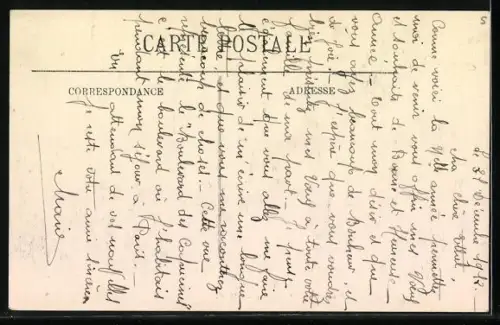 CARTE POSTALE
CORRESPONDANCE
ADRESSE
le 31 Décembre 1912
Ma chère
Comme voici la Nelle année permettez
moi de venir vous offrir mes vœux
et souhaits de Bonne et Heureuse
Année. Tout mon désir est que
vous ayez beaucoup de Bonheur et
de joie. J'espère que vous voudrez
bien présenter mes Vœux à toute votre
famille de ma part. Je pense
également que vous allez me faire
le plaisir de m'écrire une longue
lettre et que vous me raconterez
beaucoup de choses. Cette vue
représente le "Boulevard des Capucines"
c'est le boulevard où j'habitais
pendant mon séjour à Paris.
En attendant de vos nouvelles
je reste votre amie sincère
Marie